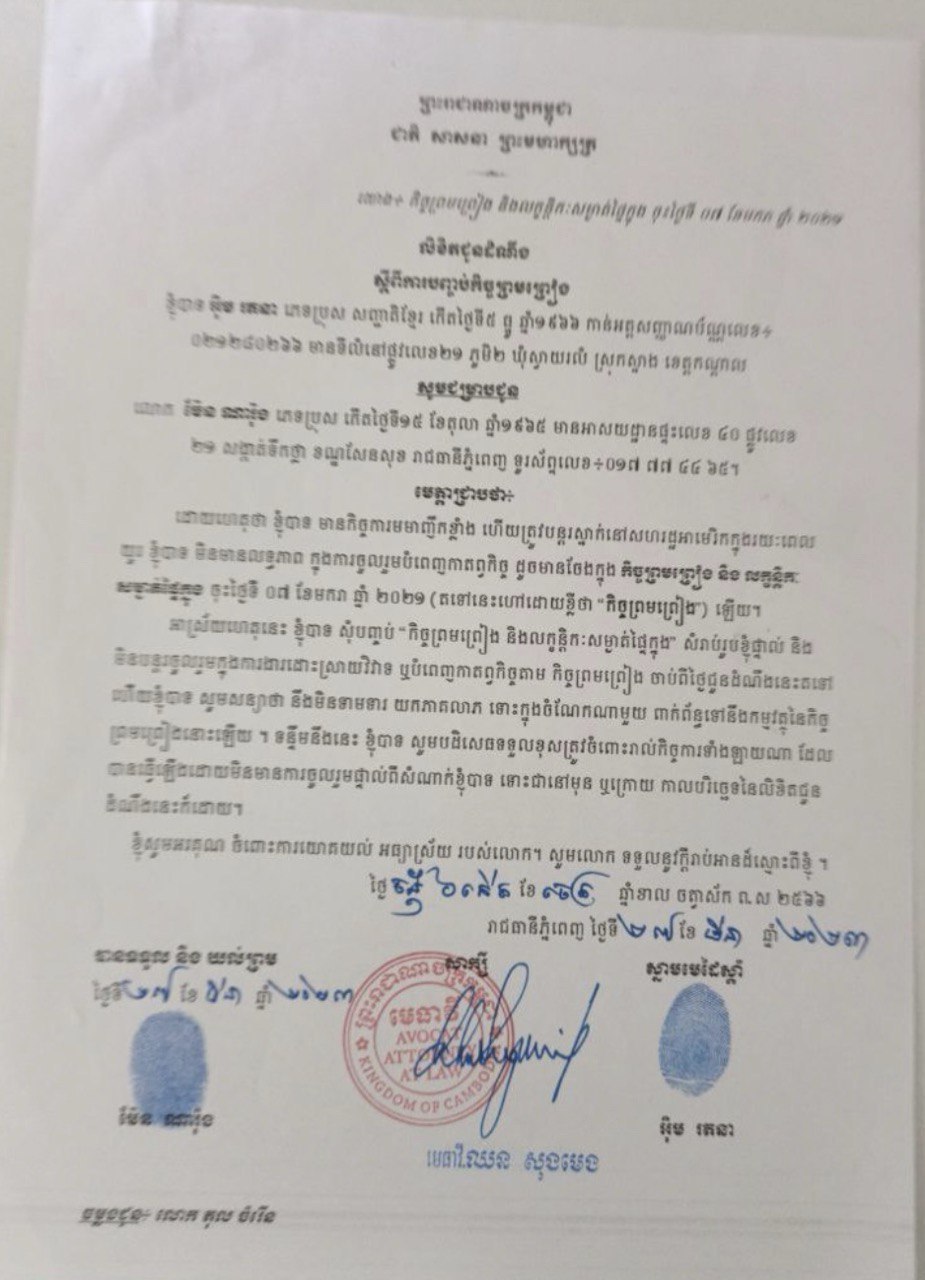 ព្រះរាជាណាចក្រកម្ពុជា
ជាតិ សាសនា ព្រះមហាក្សត្រ
យោង÷ កិច្ចព្រមព្រៀង និងលក្ខន្តិកៈសម្ងាត់ផ្ទៃក្នុង ចុះថ្ងៃទី ០៧ ខែមករា ឆ្នាំ ២០២១
លិខិតជូនដំណឹង
ស្តីពីការបញ្ចប់កិច្ចព្រមព្រៀង
ខ្ញុំបាទ អ៊ិម រតនា ភេទប្រុស សញ្ជាតិខ្មែរ កើតថ្ងៃទី៥ ធ្នូ ឆ្នាំ១៩៦៦ កាន់អត្តសញ្ញាណប័ណ្ណលេខ÷
០២១២៨០២៦៦ មានទីលំនៅផ្លូវលេខ២១ ភូមិ២ ឃុំស្វាយរលំ ស្រុកស្អាង ខេត្តកណ្តាល
សូមជម្រាបជូន
លោក ម៉ែន ណារ៉ុង ភេទប្រុស កើតថ្ងៃទី១៥ ខែតុលា ឆ្នាំ១៩៦៥ មានអាសយដ្ឋានផ្ទះលេខ ៤០ ផ្លូវលេខ
២១ សង្កាត់ទឹកថ្លា ខណ្ឌសែនសុខ រាជធានីភ្នំពេញ ទូរស័ព្ទលេខ÷០១៧ ៧៧ ៤៤ ៦៥។
មេត្តាជ្រាបថា÷
ដោយហេតុថា ខ្ញុំបាទ មានកិច្ចការមមាញឹកខ្លាំង ហើយត្រូវបន្តរស្នាក់នៅសហរដ្ឋអាមេរិកក្នុងរយៈពេល
យូរ ខ្ញុំបាទ មិនមានលទ្ធភាព ក្នុងការចូលរួមបំពេញកាតព្វកិច្ច ដូចមានចែងក្នុង កិច្ចព្រមព្រៀង និង លក្ខន្តិកៈ
សម្ងាត់ផ្ទៃក្នុង ចុះថ្ងៃទី ០៧ ខែមករា ឆ្នាំ ២០២១ (តទៅនេះហៅដោយខ្លីថា “កិច្ចព្រមព្រៀង”) ឡើយ។
អាស្រ័យហេតុនេះ ខ្ញុំបាទ សុំបញ្ចប់ “កិច្ចព្រមព្រៀង និងលក្ខន្តិកៈសម្ងាត់ផ្ទៃក្នុង” សំរាប់រូបខ្ញុំផ្ទាល់ និង
មិនបន្តរចូលរួមក្នុងការងារដោះស្រាយវិវាទ ឬបំពេញកាតព្វកិច្ចតាម កិច្ចព្រមព្រៀង ចាប់ពីថ្ងៃជូនដំណឹងនេះតទៅ
ហើយខ្ញុំបាទ សូមសន្យាថា នឹងមិនទាមទារ យកភាគលាភ ទោះក្នុងចំណែកណាមួយ ពាក់ព័ន្ធទៅនឹងកម្មវត្ថុនៃកិច្ច
ព្រមព្រៀងនោះឡើយ ។ ទន្ទឹមនឹងនេះ ខ្ញុំបាទ សូមបដិសេធទទួលខុសត្រូវចំពោះរាល់កិច្ចការទាំងឡាយណា ដែល
បានធ្វើឡើងដោយមិនមានការចូលរួមផ្ទាល់ពីសំណាក់ខ្ញុំបាទ ទោះជានៅមុន ឬក្រោយ កាលបរិច្ឆេទនៃលិខិតជូន
ដំណឹងនេះក៏ដោយ។
ខ្ញុំសូមអរគុណ ចំពោះការយោគយល់ អធ្យាស្រ័យ របស់លោក។ សូមលោក ទទួលនូវក្តីរាប់អានដ៏ស្មោះពីខ្ញុំ ។
ថ្ងៃ ចន្ទ ៦កើត ខែ ចេត្រ ឆ្នាំខាល ចត្វាស័ក ព.ស ២៥៦៦
រាជធានីភ្នំពេញ ថ្ងៃទី ២៧ ខែ មីនា ឆ្នាំ ២០២៣
បានទទួល និង យល់ព្រម
ថ្ងៃទី ២៧ ខែ មីនា ឆ្នាំ ២០២៣
សាក្សី
ស្នាមមេដៃស្តាំ
ព្រះរាជាណាចក្រកម្ពុជា
មេធាវី
AVOCAT
ATTORNEY
AT LAW
KINGDOM OF CAMBODIA
ម៉ែន ណារ៉ុង
អ៊ិម រតនា
មេធាវី.ឈន សុងមេង
ចម្លងជូន÷ លោក តុល ចំរើន